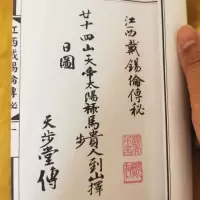 江西戴錫倫傳秘
廿十四山天帝太陽祿馬貴人到山擇
日圖
天步堂傳
江西戴錫倫傳秘